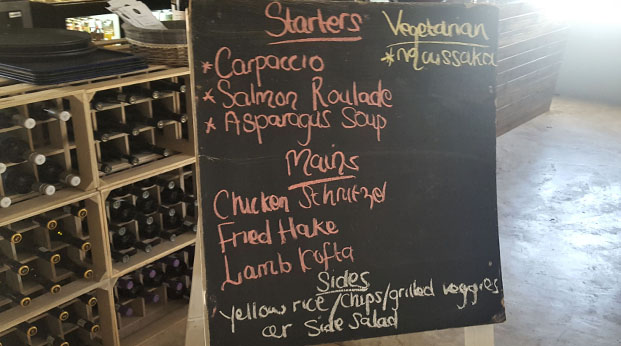 Starters
* Carpaccio
* Salmon Roulade
* Asparagus Soup
Vegetarian
* Moussaka
Mains
Chicken Schnitzel
Fried Hake
Lamb Kofta
Sides
Yellow rice/chips/grilled veggies
or Side Salad